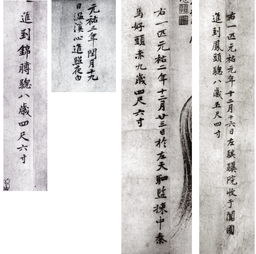 右一匹元祐元年十二月十六日左騏驥院收于闐國
進到鳳頭驄八歲五尺四寸
右一匹元祐二年十二月廿三日於左天駟監揀中秦
馬好頭赤九歲四尺六寸
元祐三年閏月十九
日溫溪心進照夜白
進到錦膊驄八歲四尺六寸